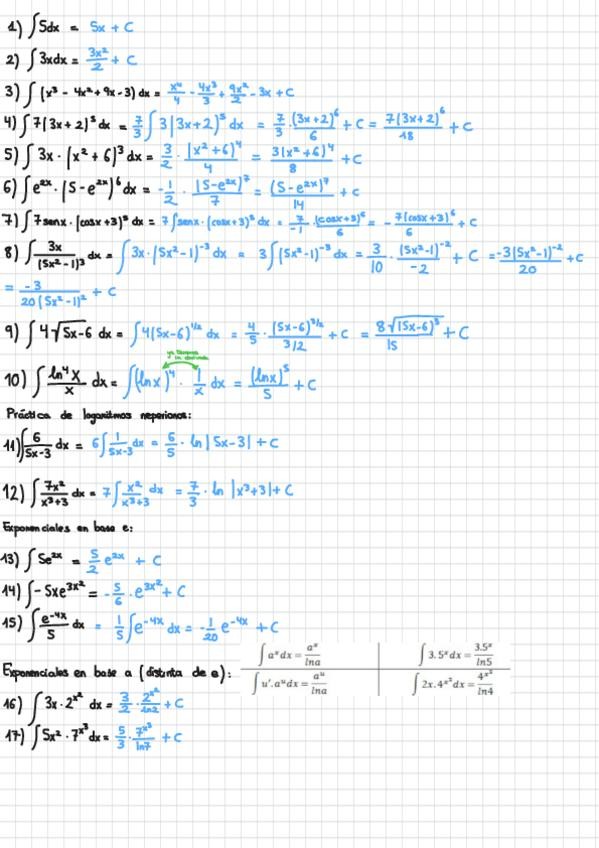 1) ∫5dx = 5x + C
2) ∫3xdx = 3x²/2 + C
3) ∫(x³ - 4x² + 9x - 3) dx = x⁴/4 - 4x³/3 + 9x²/2 - 3x + C
4) ∫7(3x+2)⁵ dx = 7/3 ∫3(3x+2)⁵ dx = 7/3 · (3x+2)⁶/6 + C = 7(3x+2)⁶/18 + C
5) ∫3x · (x²+6)³ dx = 3/2 · (x²+6)⁴/4 = 3(x²+6)⁴/8 + C
6) ∫e²ˣ · (5-e²ˣ)⁶ dx = -1/2 · (5-e²ˣ)⁷/7 = (5-e²ˣ)⁷/14 + C
7) ∫7senx · (cosx+3)⁵ dx = 7∫senx · (cosx+3)⁵ dx = 7/-1 · (cosx+3)⁶/6 = - 7(cosx+3)⁶/6 + C
8) ∫3x/(5x²-1)³ dx = ∫3x · (5x²-1)⁻³ dx = 3∫(5x²-1)⁻³ dx = 3/10 · (5x²-1)⁻²/-2 + C = -3(5x²-1)⁻²/20 + C
= -3/20(5x²-1)² + C
9) ∫4√5x-6 dx = ∫4(5x-6)^1/2 dx = 4/5 · (5x-6)^3/2/3/2 + C = 8√(5x-6)³/15 + C
ya tenemos
su derivada
10) ∫ln⁴x/x dx = ∫(lnx)⁴ · 1/x dx = (lnx)⁵/5 + C
Práctica de logaritmos neperianos:
11) ∫6/5x-3 dx = 6∫1/5x-3 dx = 6/5 · ln|5x-3| + C
12) ∫7x²/x³+3 dx = 7∫x²/x³+3 dx = 7/3 · ln |x³+3| + C
Exponenciales en base e:
13) ∫5e²ˣ = 5/2 e²ˣ + C
14) ∫-5xe^3x² = -5/6 · e^3x² + C
15) ∫e⁻⁴ˣ/5 dx = 1/5∫e⁻⁴ˣ dx = -1/20 e⁻⁴ˣ + C
∫aˣdx = aˣ/lna ∫3.5ˣdx = 3.5ˣ/ln5
Exponenciales en base a (distinta de e):
∫u'.aᵘdx = aᵘ/lna ∫2x.4^x²dx = 4^x²/ln4
16) ∫3x · 2^x² dx = 3/2 · 2^x²/ln2 + C
17) ∫5x² · 7^x³ dx = 5/3 · 7^x³/ln7 + C